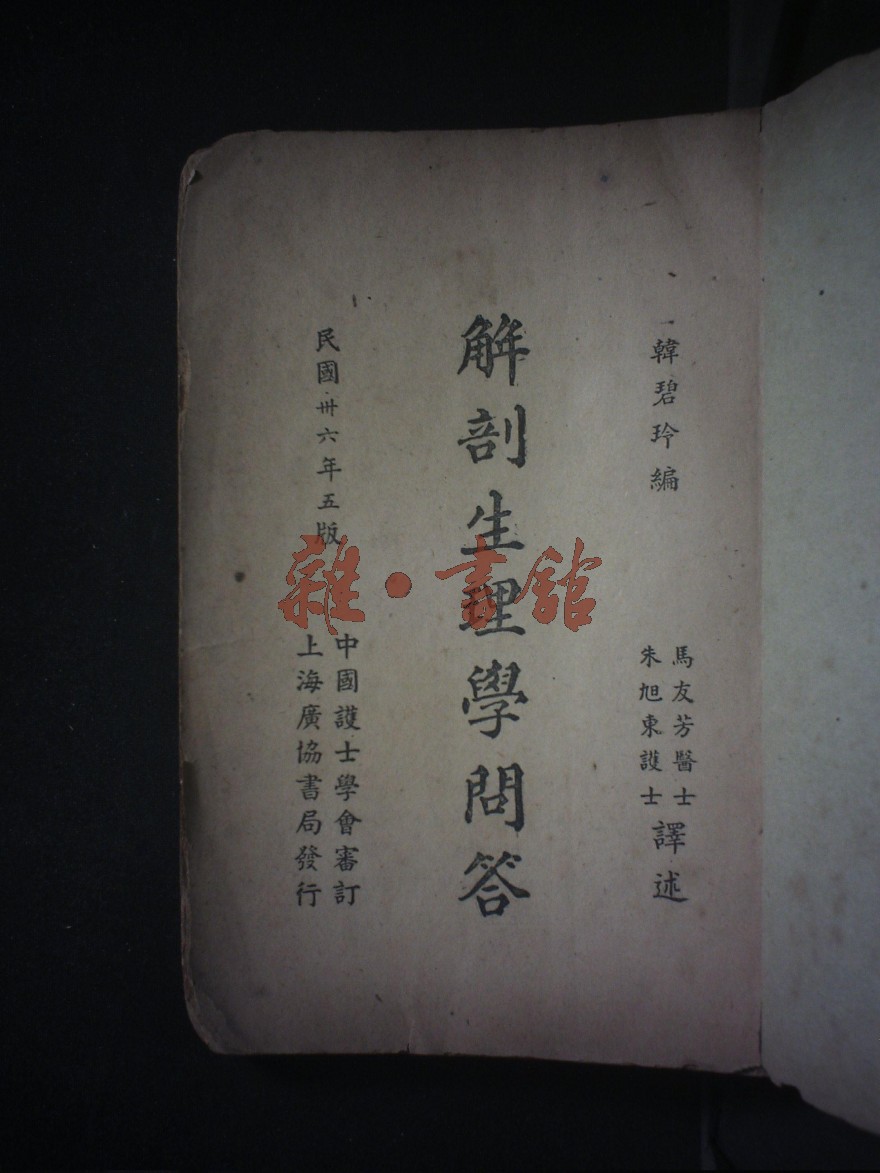 韓碧玲編
馬友芳醫士
朱旭東護士
譯述
解剖生理學問答
民國卅六年五版
中國護士學會審訂
上海廣協書局發行
雜·書館